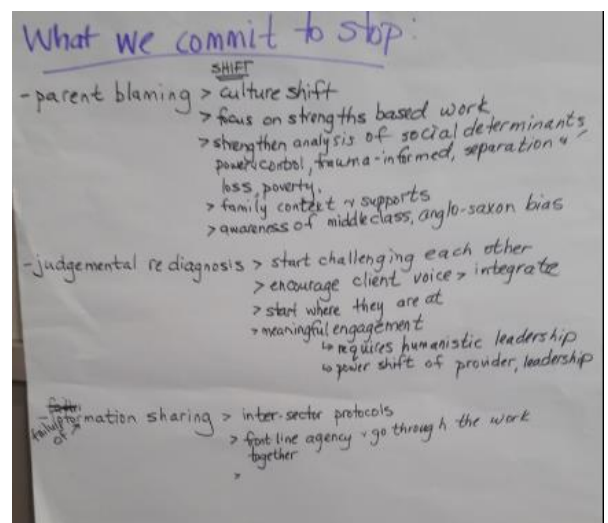 What we commit to stop:
SHIFT
- parent blaming > culture shift
> focus on strengths based work
> strengthen analysis of social determinants,
power/control, trauma-informed, separation
loss, poverty.
> family context & supports
> awareness of middle class, anglo-saxon bias
- judgemental re diagnosis > start challenging each other
> encourage client voice > integrate
> start where they are at
> meaningful engagement
↳ requires humanistic leadership
↳ power shift of provider, leadership
- failure of information sharing > inter-sector protocols
> front line agency & go through the work
together
>